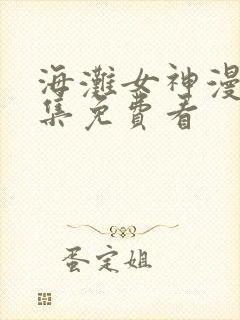 海灘女神漫
集免費看
蛋定姐